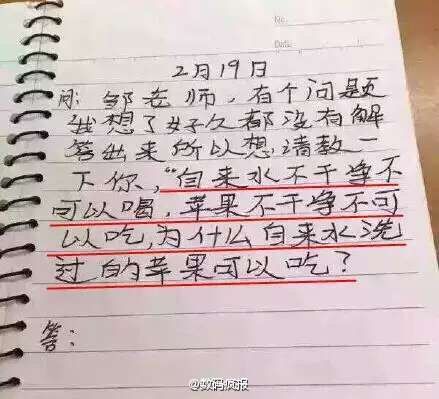 No.
Date
2月19日
问：邹老师，有个问题
我想了好久都没有解
答出来所以想请教一
下你，“自来水不干净不
可以喝，苹果不干净不可
以吃，为什么自来水洗
过的苹果可以吃？
答：
@数码疯报